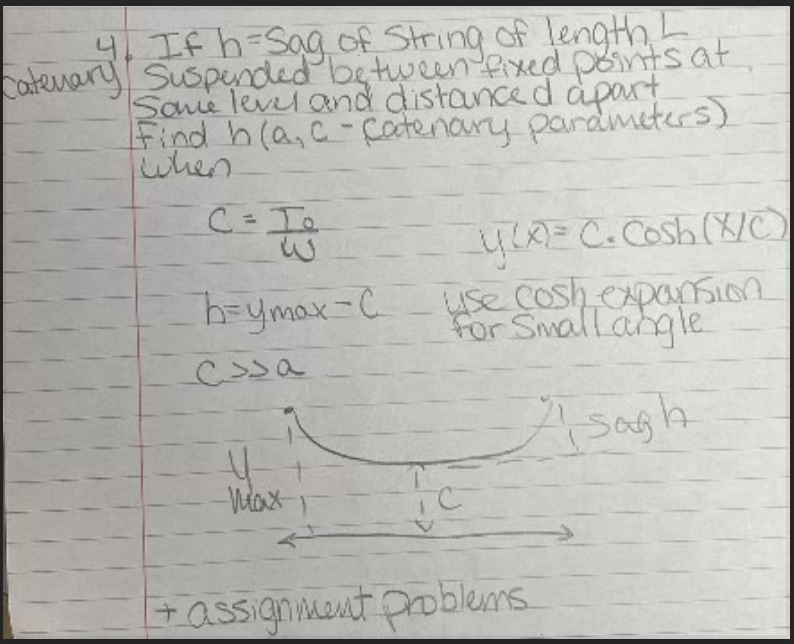 4. If h=Sag of String of length L
Catenary Suspended between fixed points at
Same level and distance d apart
Find h(a, c - Catenary parameters)
when
C = To/W
y(x) = C. Cosh(X/C)
h=ymax-C
use cosh expansion
for Small angle
C>>a
sag h
y
Max
C
+ assignment problems